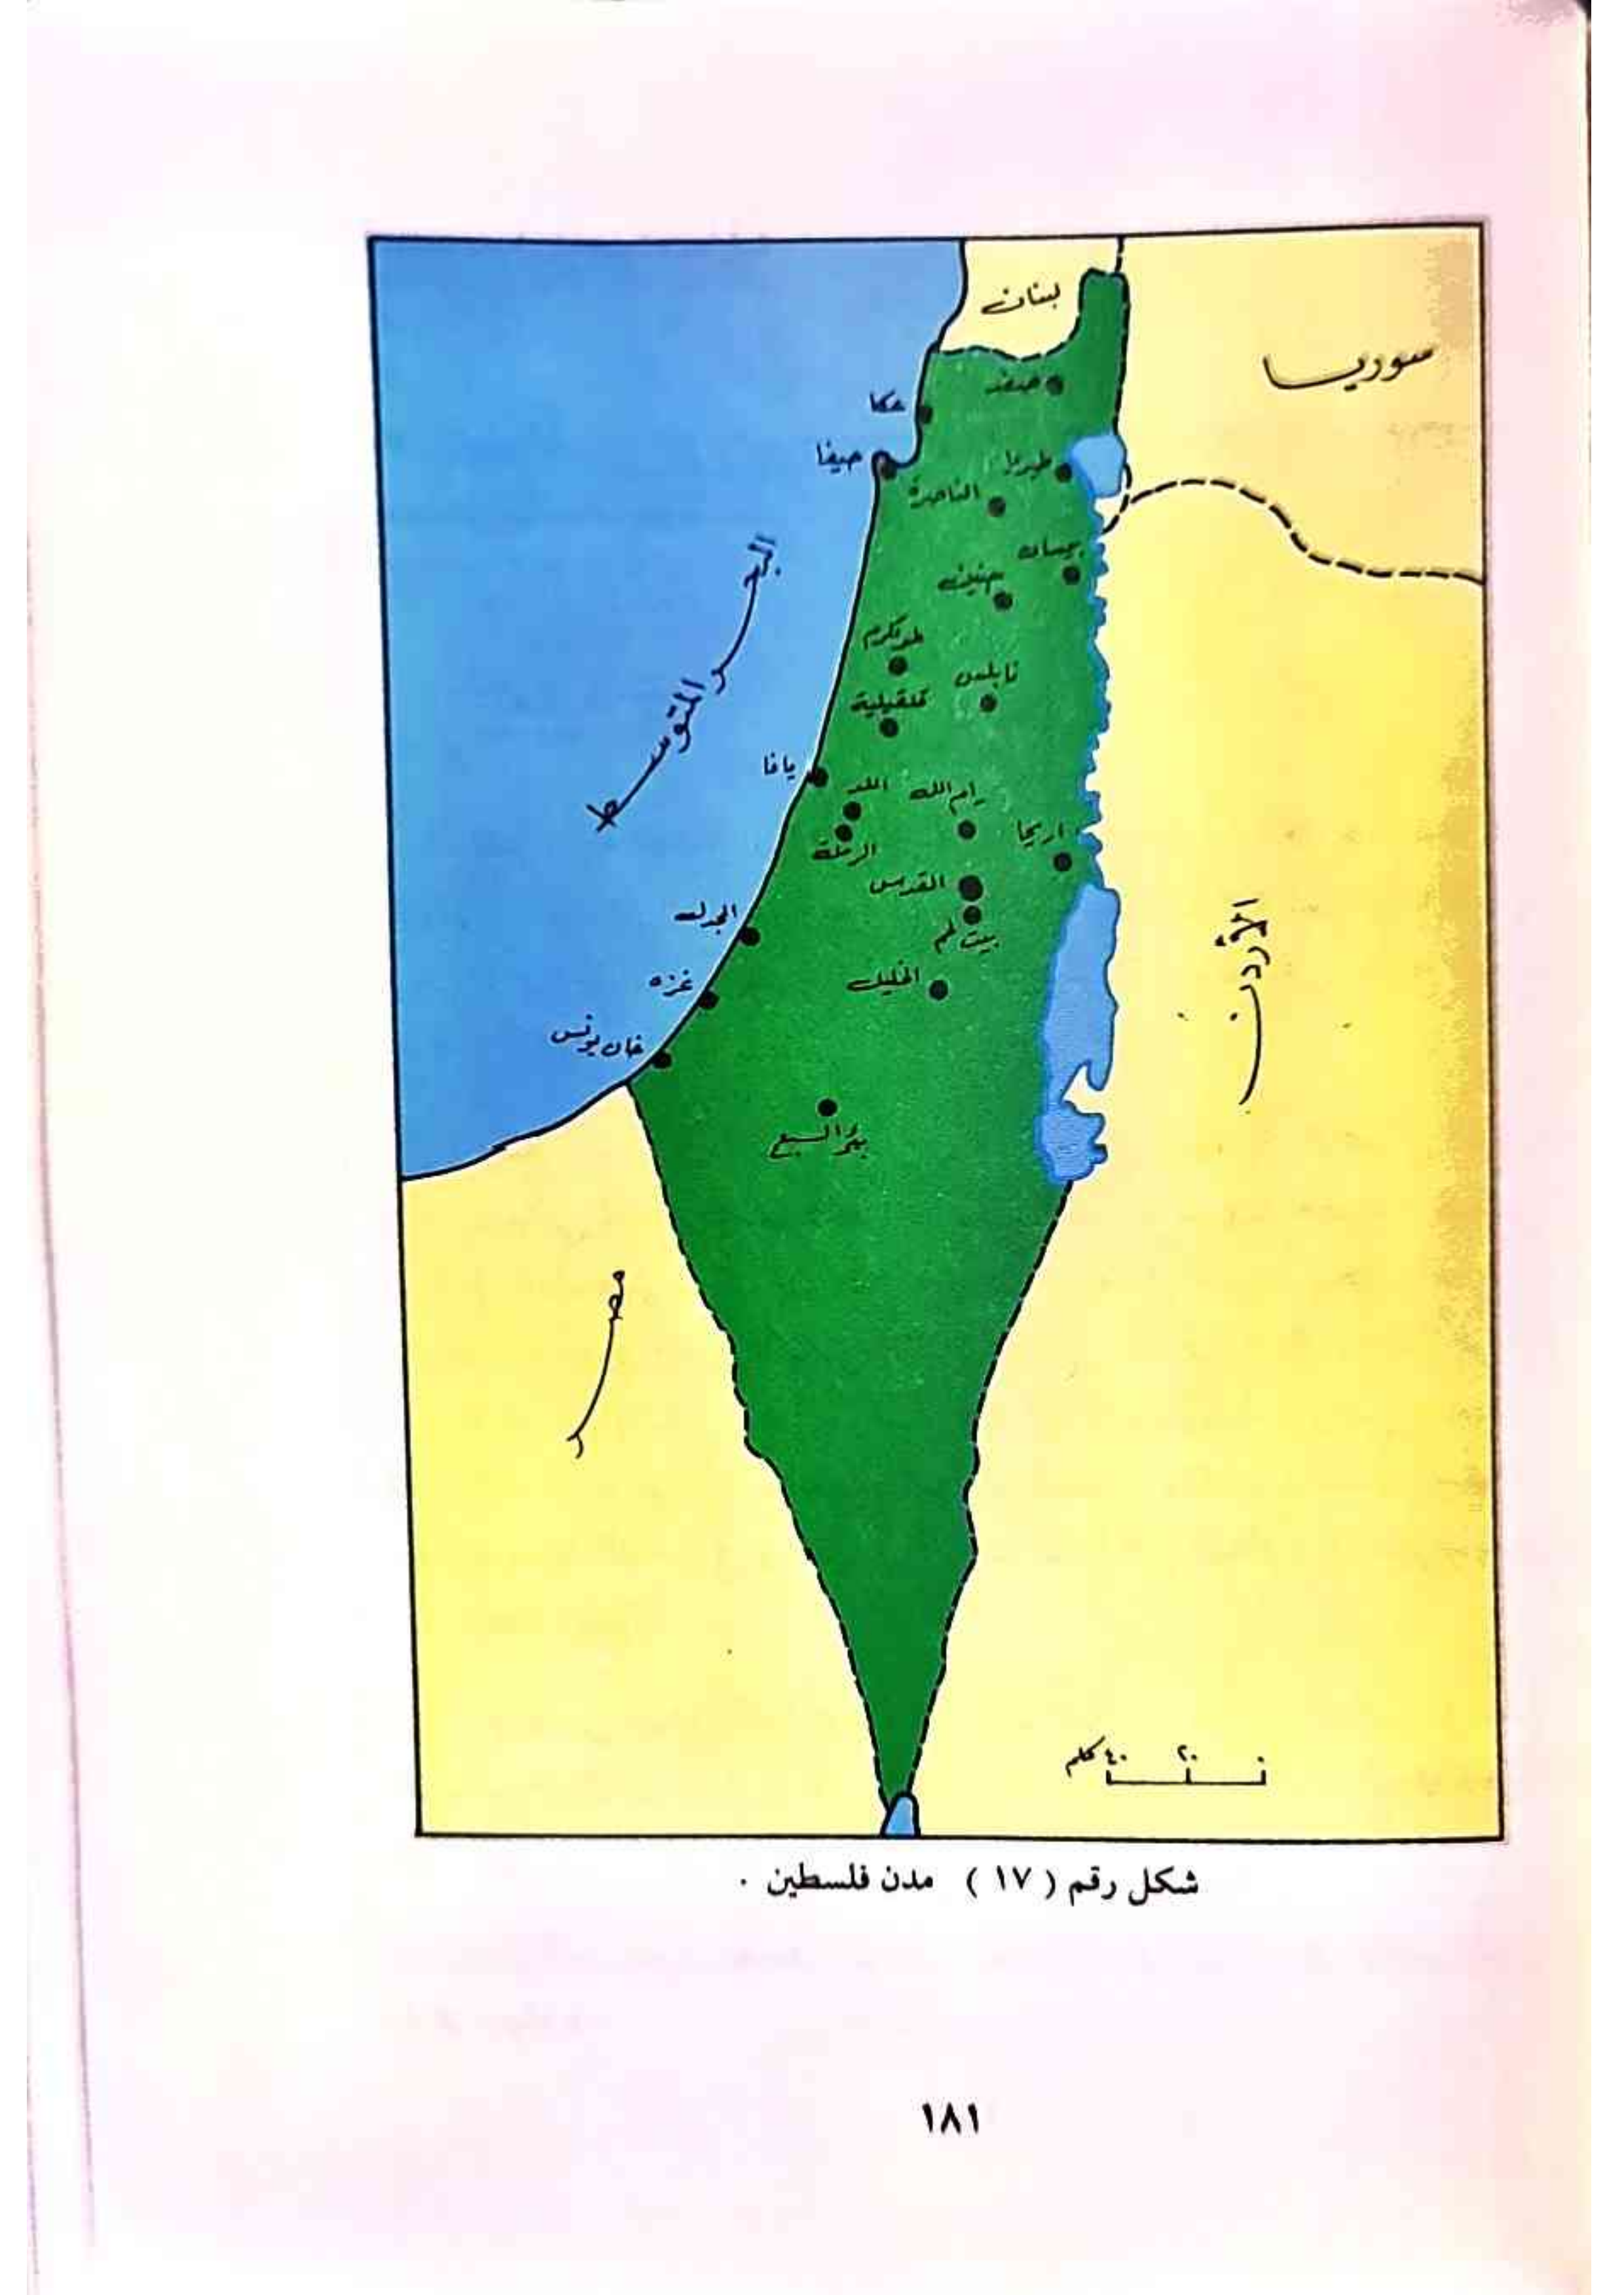 لبنان
سوريا
صفد
عكا
حيفا
طبريا
الناصرة
بيسان
جنين
البحر المتوسط
طولكرم
نابلس
قلقيلية
يافا
اللد
رام الله
الرملة
اريحا
القدس
المجدل
بيت لحم
الخليل
غزه
خان يونس
الأردن
بئر السبع
مصر
٠ ٢٠ ٤٠ كلم
شكل رقم ( ١٧ ) مدن فلسطين .
١٨١